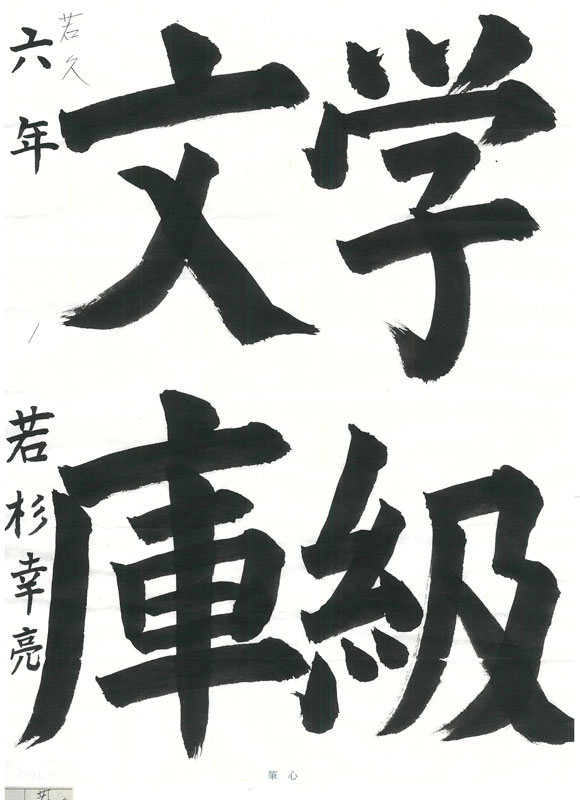 学級
文庫
六年
若杉幸亮
若久
筆心